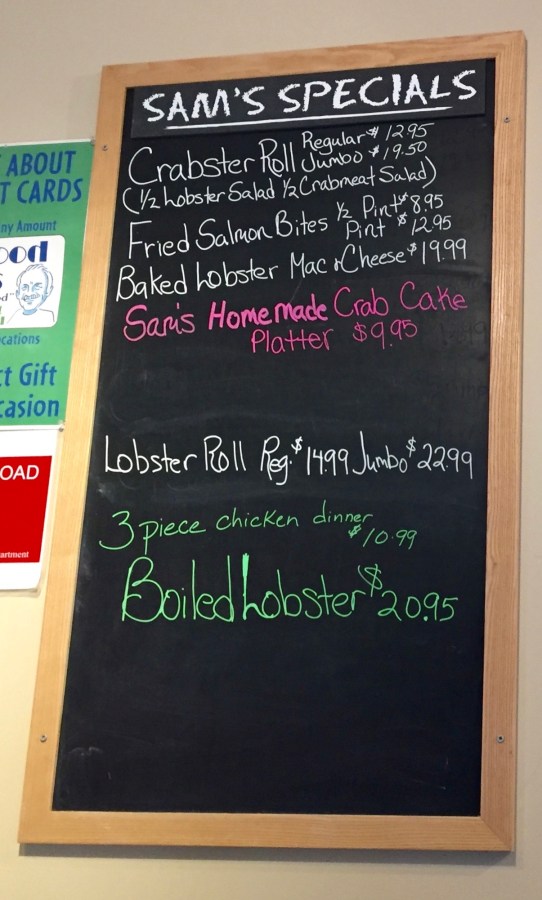 SAM'S SPECIALS
Crabster Roll Regular $12.95
Jumbo $19.50
(1/2 Lobster Salad 1/2 Crabmeat Salad)
Fried Salmon Bites 1/2 Pint $8.95
Pint $12.95
Baked Lobster Mac & Cheese $19.99
Sam's Homemade Crab Cake
Platter $9.95
Lobster Roll Reg. $14.99 Jumbo $22.99
3 piece chicken dinner
$10.99
Boiled Lobster $20.95
ABOUT
T CARDS
ny Amount
ood
cations
ct Gift
casion
OAD
artment